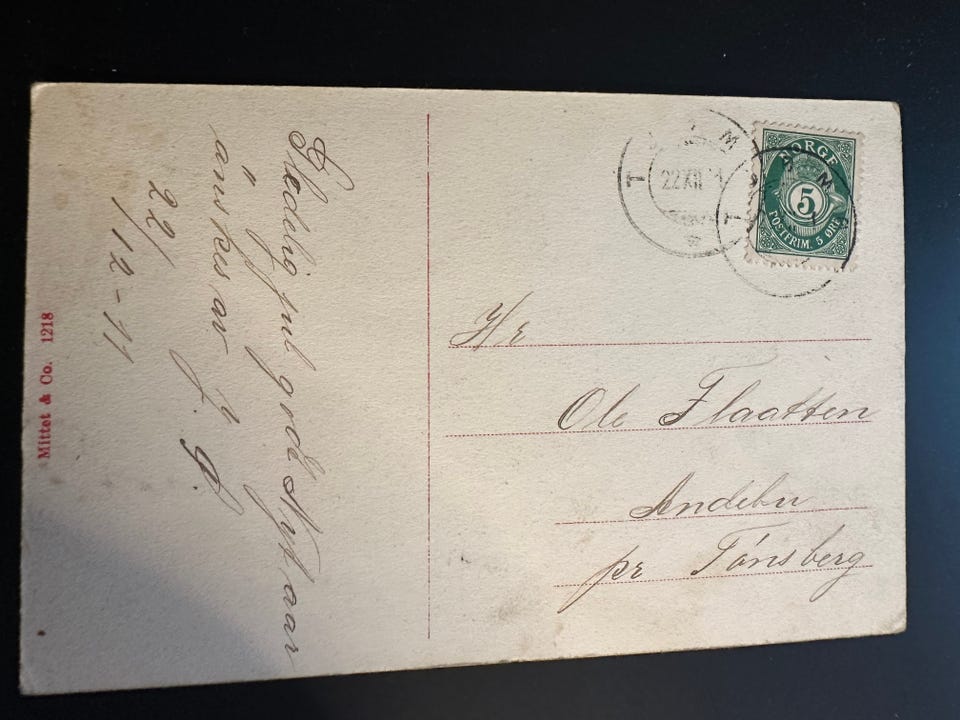 Glædelig jul god Nytaar
önskes av J.
22/
12-11
Mittet & Co. 1218
22 XII
NORGE
5
POSTFRIM. 5 ØRE
Hr
Ole Flaatten
Andebu
pr Tönsberg